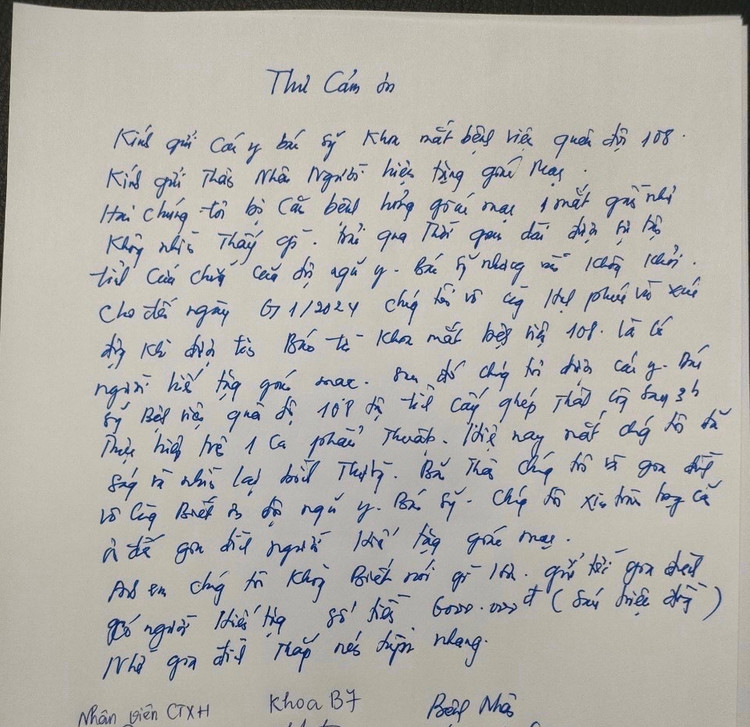 Thư Cảm ơn
Kính gửi Các y bác sỹ Khoa mắt bệnh viện quân đội 108.
Kính gửi Thân Nhân Người hiến tặng giác mạc.
Hai chúng tôi bị Căn bệnh hỏng giác mạc 1 mắt gần như
Không nhìn Thấy gì. trải qua Thời gian dài điều trị
tích cực của đội ngũ y. Bác sỹ nhưng vẫn không khỏi.
Cho đến ngày 1/2024 chúng tôi vô cùng Hạnh phúc và xúc
động khi được tin Báo từ Khoa mắt bệnh viện 108. là có
người hiến tặng giác mạc. sau đó chúng tôi được các y. Bác
sỹ Bệnh viện quân đội 108 đã tiến cấy ghép Thành công sau 3h
Thực hiện 1 Ca phẫu Thuật. Hiện nay mắt chúng tôi đã
sáng và nhìn lại bình Thường. Bản Thân chúng tôi và gia đình
vô cùng Biết ơn đội ngũ y. Bác sỹ. Chúng tôi xin trân trọng cảm
ơn đến gia đình người Hiến tặng giác mạc.
Anh em chúng tôi không Biết nói gì hơn. gửi tới gia đình
người Hiến tặng số tiền 6000.000đ (Sáu triệu đồng)
Nhờ gia đình Thắp nén nhang.
Nhân viên CTXH Khoa B7 Bệnh Nhân